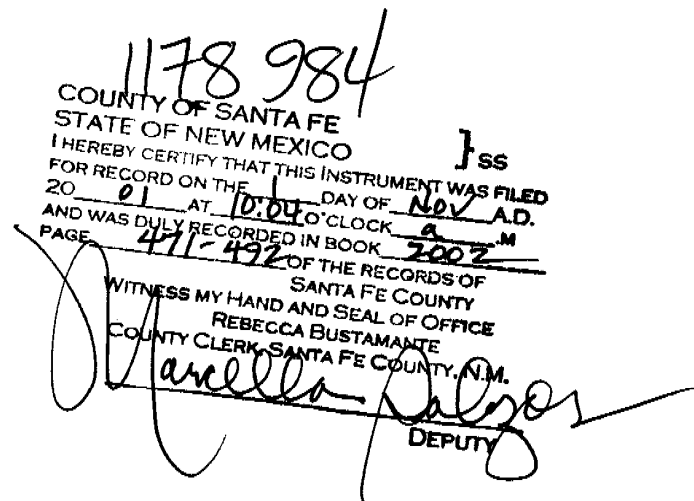 1178 984
COUNTY OF SANTA FE
STATE OF NEW MEXICO } SS
I HEREBY CERTIFY THAT THIS INSTRUMENT WAS FILED
FOR RECORD ON THE 1 DAY OF NOV A.D.
20 01 AT 10:04 O'CLOCK a .M
AND WAS DULY RECORDED IN BOOK 2002
PAGE 471-492 OF THE RECORDS OF
SANTA FE COUNTY
WITNESS MY HAND AND SEAL OF OFFICE
REBECCA BUSTAMANTE
COUNTY CLERK, SANTA FE COUNTY, N.M.
Marcella
DEPUTY